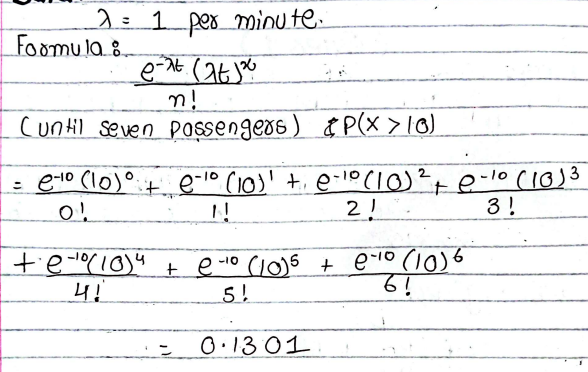 λ = 1 per minute.
Formula :
e^-λt (λt)^x / n!
(until seven passengers) & P(X > 10)
= e^-10 (10)^0 / 0! + e^-10 (10)^1 / 1! + e^-10 (10)^2 / 2! + e^-10 (10)^3 / 3!
+ e^-10 (10)^4 / 4! + e^-10 (10)^5 / 5! + e^-10 (10)^6 / 6!
= 0.1301